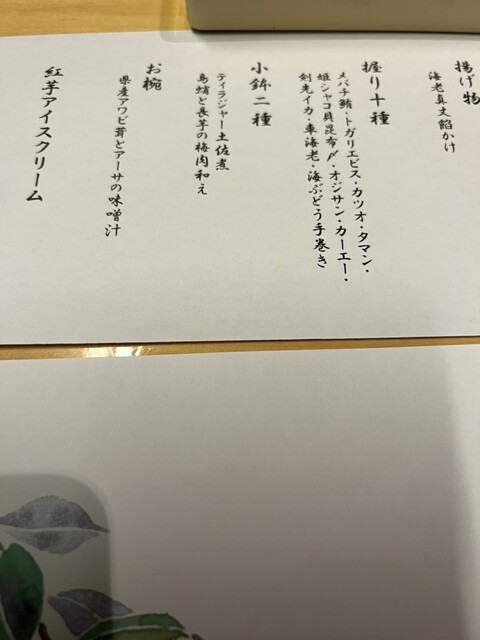 揚げ物
海老真丈餡かけ
握り十種
メバチ鮪・トガリエビス・カツオ・タマン・
姫シャコ貝昆布〆・オジサン・カーエー・
剣先イカ・車海老・海ぶどう手巻き
小鉢二種
ティラジャー土佐煮
島蛸と長芋の梅肉和え
お椀
県産アワビ茸とアーサの味噌汁
紅芋アイスクリーム